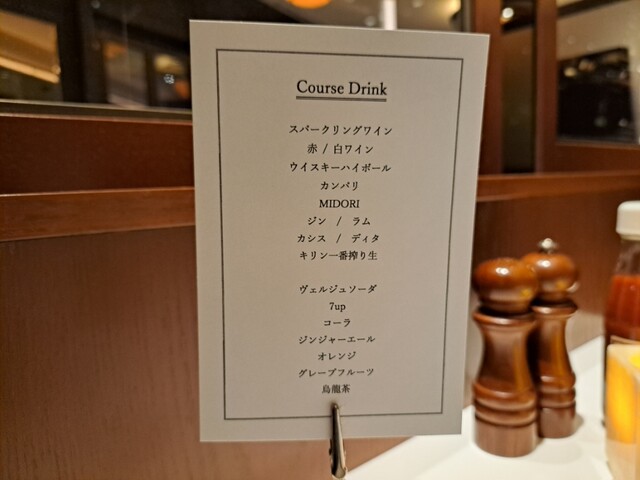 Course Drink
スパークリングワイン
赤 / 白ワイン
ウイスキーハイボール
カンパリ
MIDORI
ジン / ラム
カシス / ディタ
キリン一番搾り生
ヴェルジュソーダ
7up
コーラ
ジンジャーエール
オレンジ
グレープフルーツ
烏龍茶